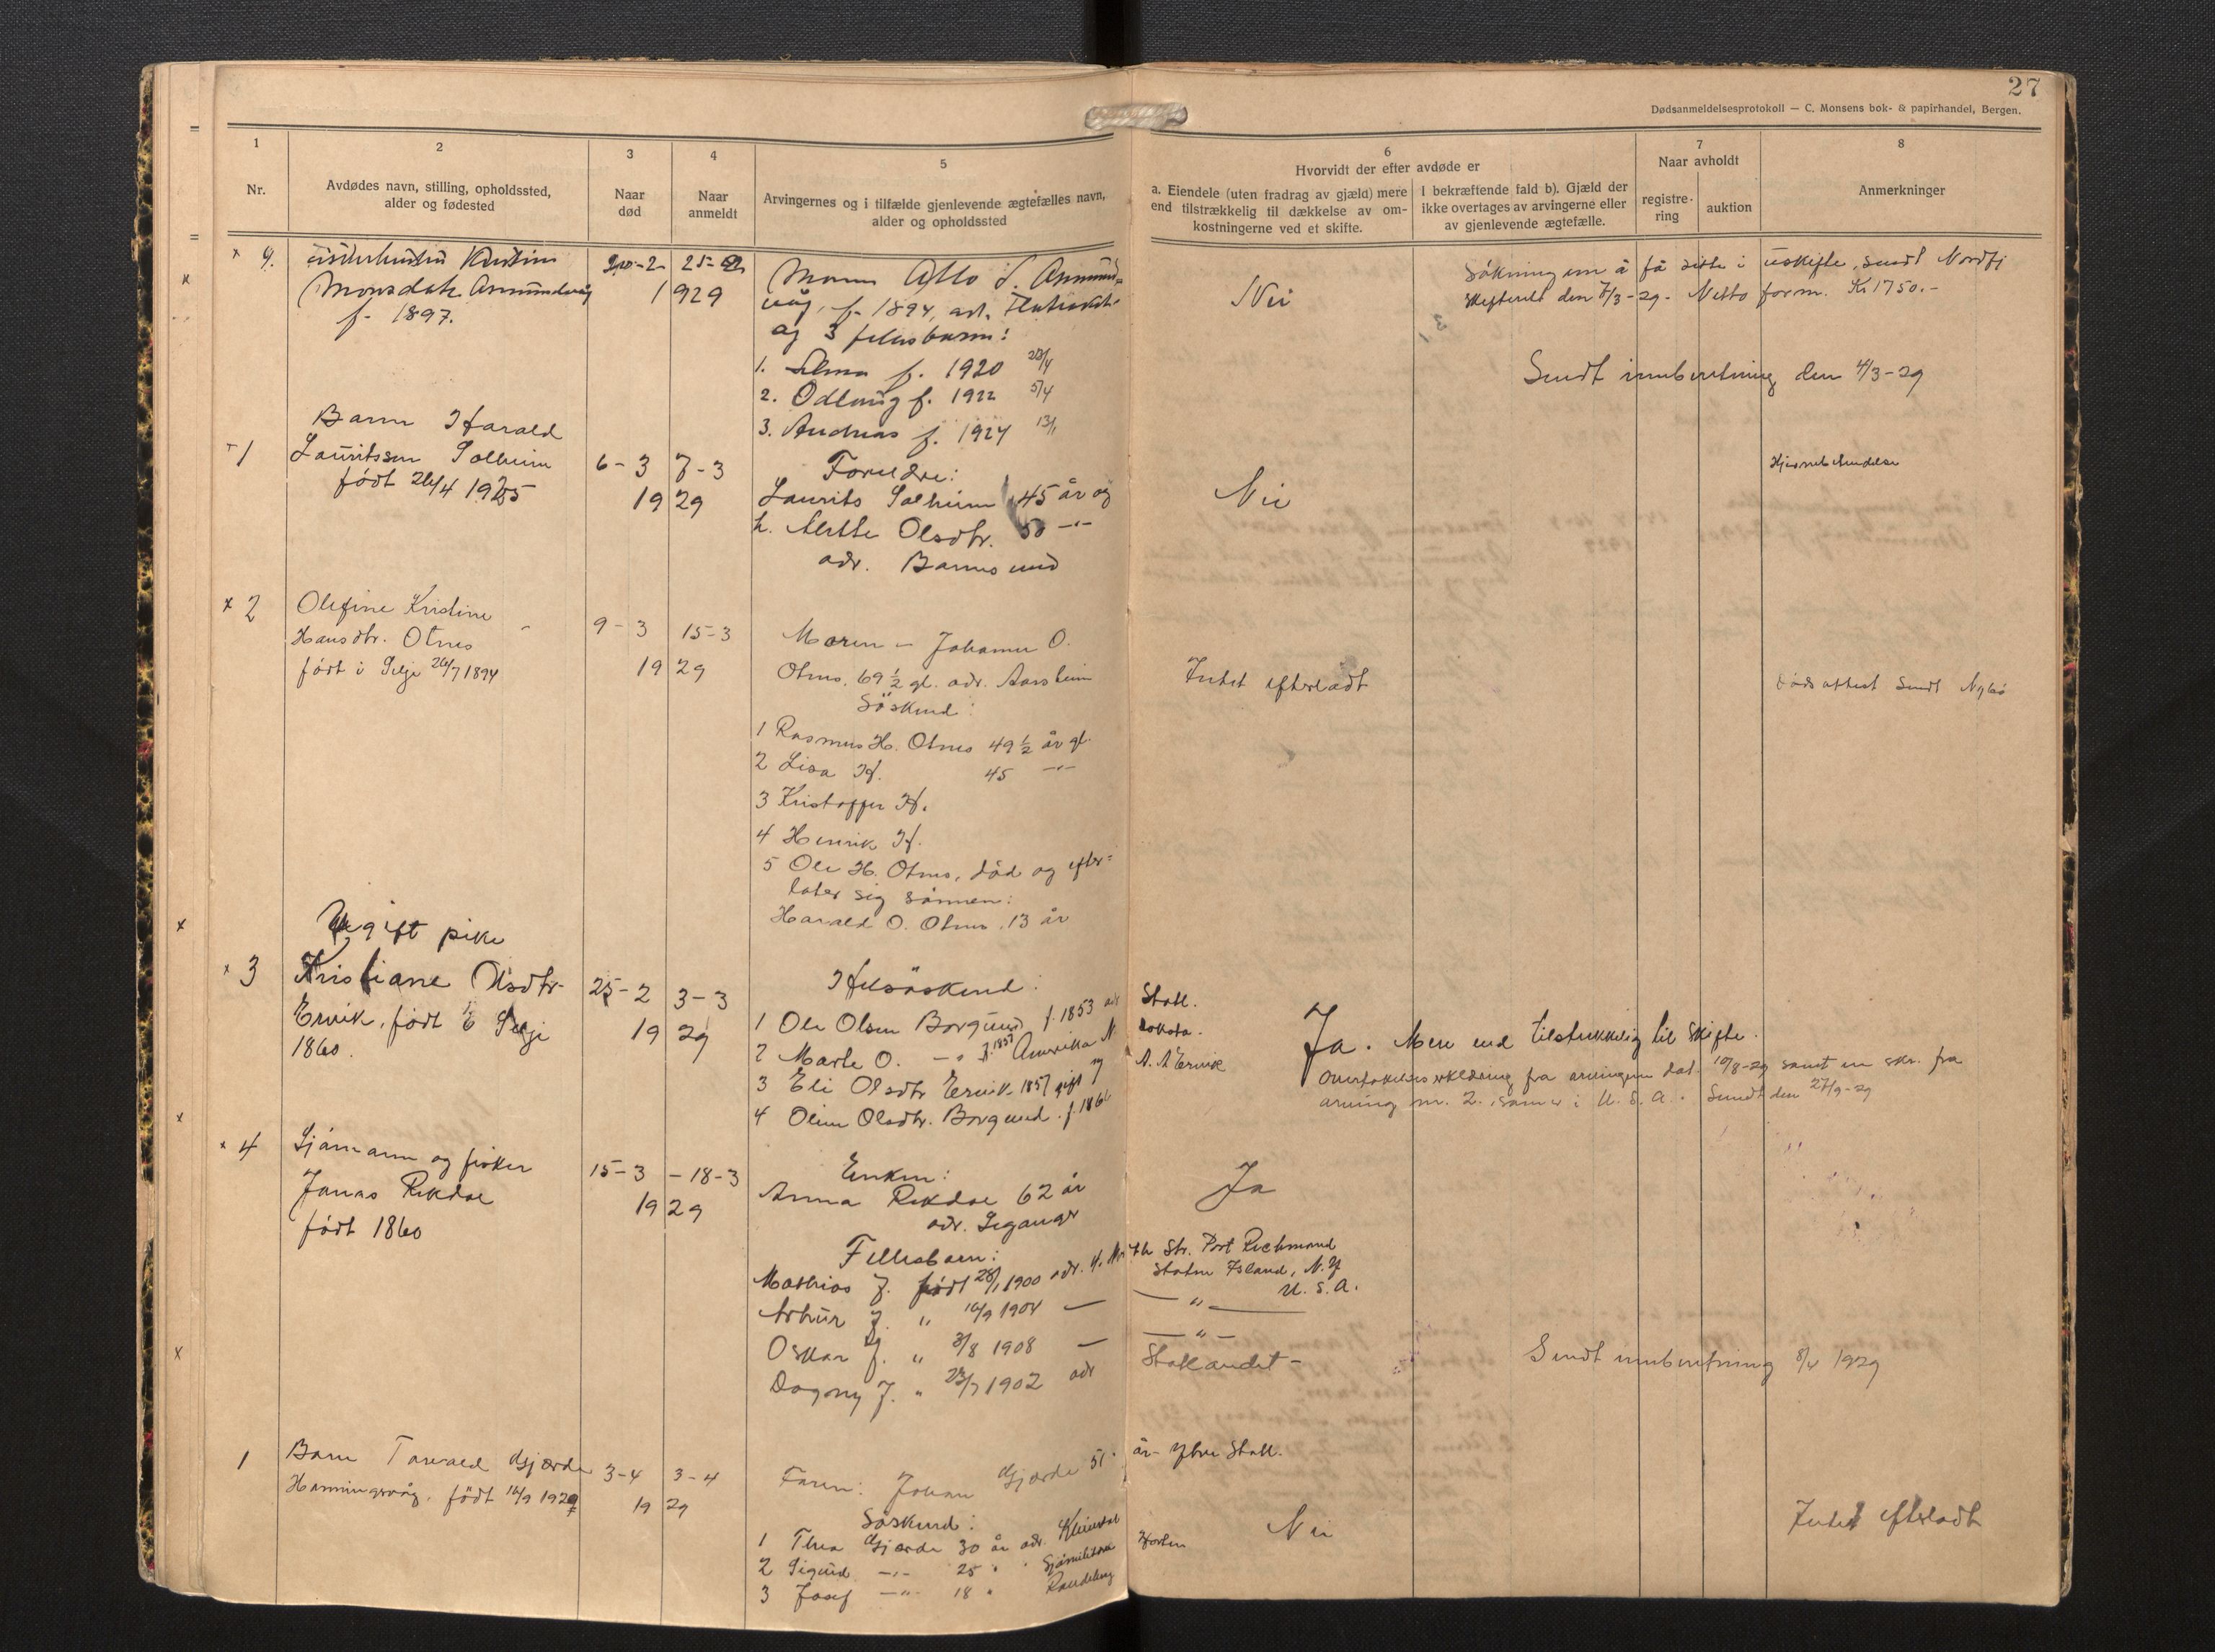 27
Dødsanmeldelsesprotokoll — C. Monsens bok- & papirhandel, Bergen.
1
Nr.
2
Avdødes navn, stilling, opholdssted,
alder og fødested
3
Naar
død
4
Naar
anmeldt
5
Arvingernes og i tilfælde gjenlevende ægtefælles navn,
alder og opholdssted
6
Hvorvidt der efter avdøde er
a. Eiendele (uten fradrag av gjæld) mere
end tilstrækkelig til dækkelse av om-
kostningerne ved et skifte.
I bekræftende fald b). Gjæld der
ikke overtages av arvingerne eller
av gjenlevende ægtefælle.
7
Naar avholdt
registre-
ring
auktion
8
Anmerkninger
x 9. Kristine
Monsdatr.
f. 1897.
25-2
1929
Mann
f. 1894, adr.
og 3 fellesbarn:
1. Alma f. 1920 23/4
2. Odlaug f. 1922 5/4
3. Andreas f. 1924 13/1
Nei
Søkning om å få sitte i uskifte, sendt Nordfj
den 7/3-29. Netto form. Kr 1750.-
Sendt innberetning den 4/3-29
1
Barn Harald
Lauritssen Solheim
født 26/4 1925
6-3 7-3
1929
Foreldre:
Laurits Solheim 45 år og
h. Olsdtr. 50 -"-
adr. Barmsund
Nei
x 2
Olefine Kristine
Hansdtr. Otnes
født i Selje 26/7 1894
9-3 15-3
1929
Moren - Johanne O.
Otnes, 69 ½ gl. adr. Aarsheim
Søskend:
1 Rasmus H. Otnes 49 ½ år gl.
2 Lisa H. 45 -"-
3 Kristoffer H.
4 Henrik H.
5 Ole H. Otnes, død og efter=
later sig sønnen:
Harald O. Otnes. 13 år
Intet efterladt
Dødsattest sendt
x 3
Ugift pike
Kristiane Olsdtr.
Ervik, født i Selje
1860.
25-2 3-3
1929
Helsøskend:
1 Ole Olsen Borgund f. 1853 adr Statl.
2 Marte O. -"- f. 1857 Amerika N. Dakota.
3 Eli Olsdtr Ervik 1857 gift m A. A Ervik
4 Oline Olsdtr. Borgund. f. 1866
Ja. Mere end tilstrekkelig til skifte.
Overtakelseserklæring fra arvingene dat. 10/8-29 samt en skr. fra
arving nr. 2. som er i U.S.A. Sendt den 27/9-29
x 4
Sjømann og fisker
Jonas Rekdal
født 1860
15-3 - 18-3
1929
Enken:
Anna Rekdal 62 år
adr. Leganger
Fellesbarn:
Mathias J. født 28/1 1900 adr. Str. Port Richmond
Staten Island, N.Y
U.S.A.
Arthur J. " 16/9 1904 — — " —
Oskar J. " 3/8 1908 — — " —
Dagny J. " 23/7 1902 adr Statlandet -
Ja
Sendt innberetning 8/4 1929
1
Barn Torvald Gjærde
Honningsvåg, født 16/9 1929
3-4 3-4
1929
Faren: Johan Gjærde 51 år - Ytre Statl.
Søskend:
1 Thea Gjærde 30 år adr.
2 Sigurd -"- 25 " " Sjømilitær Horten
3 Josef -"- 18 "
Nei
Intet efterladt